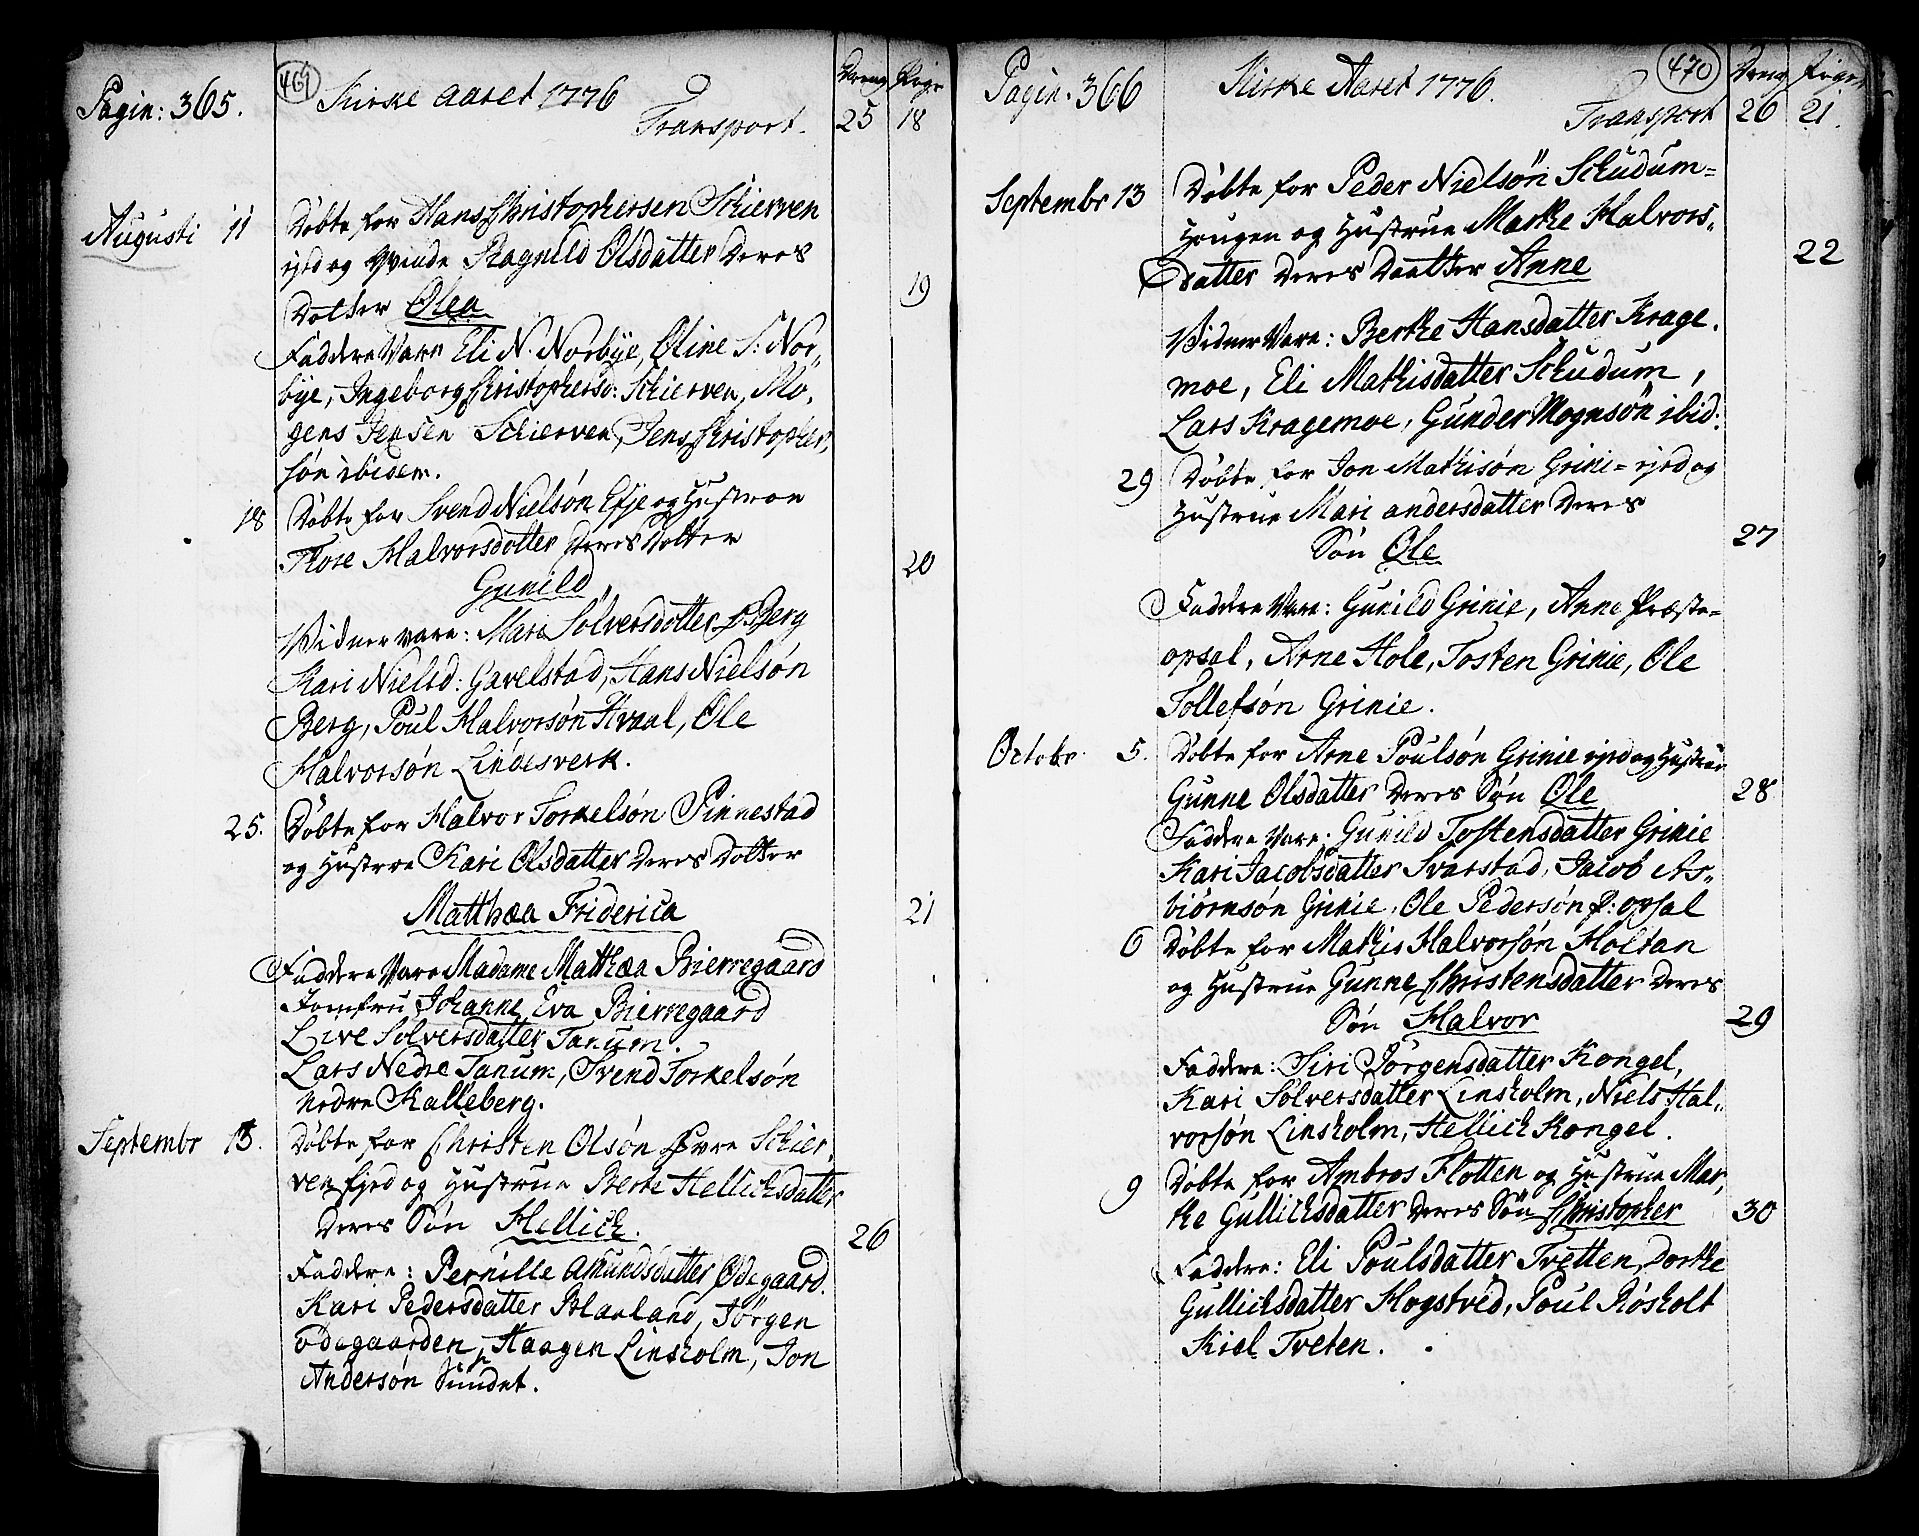 Pagin: 365.
469
Kirke Aaret 1776
Dreng Pige
Transport. 25 18
Augusti 11 Döbte for Hans Christophersen Schierven
ejed og Qvinde Ragnild Olsdatter Deres
Dotter Olea 19
Faddere Vare Eli N. Norbye, Oline S: Nor,,
bye, Ingeborg Christophersd: Schierven, Mo,
gens Jensen Schierven, Jens Christopher,
søn ibidem.
18 Döbte for Svend Nielsøn Efje og Hustroe
Tore Halvorsdotter Deres Dotter
Gunild 20
Vidner vare: Mari Solversdotter Berg
Kari Nielsd: Gavelstad, Hans Nielsøn
Berg, Poul Halvorsøn Hvaal, Ole
Halvorsøn Lindesverk.
25. Döbte for Halvor Torkelsøn Pinnestad
og Hustroe Kari Olsdatter Deres Dotter
Matthæa Friderica 21
Faddere Vare Madame Matthæa Bierregaard
Jomfru Johanne Eva Bierregaard
Live Solversdatter Tanum.
Lars Nedre Tanum, Svend Torkelsøn
Nedre Kalleberg.
Septembr 15. Döbte for Christen Olsøn Øvre Schier,
ven ejed og Hustrue Berte Hellichsdatter
Deres Søn Hellich. 26
Faddere: Pernille Amundsdatter Ødegaard.
Kari Pedersdatter Blarland, Jørgen
Ødegaarden, Haagen Linsholm, Jon
Andersøn Sundet.
Pagin. 366
Kirke Aaret 1776.
470
Dreng Piger
Transport 26 21.
Septembr 13 Döbte for Peder Nielsøn Schudum=
Hougen og Hustrue Marthe Halvors,,
Datter Deres Daatter Anne 22
Vidner Vare: Berthe Hansdatter Krage.
moe, Eli Mathisdatter Schudum,
Lars Kragemoe, Gunder Mognsøn ibid:
29 Döbte for Jon Mathisøn Grini= ejed og
Hustrue Mari andersdatter Deres
Søn Ole 27
Faddere Vare: Gunild Grinie, Anne Præste=
opsal, Arne Hole, Tosten Grinie, Ole
Tollefsøn Grinie.
Octobr. 5. Döbte for Arne Poulsøn Grinie ejed og Hustrue
Gunne Olsdatter Deres Søn Ole 28
Faddere Vare: Gunild Tostensdatter Grinie
Kari Jacobsdatter Svarstad, Jacob As,,
biørnsøn Grinie, Ole Pedersøn P: opsal
6 Döbte for Mathis Halvorsøn Holtan
og Hustrue Gunne Christensdatter Deres
Søn Halvor 29
Faddere: Siri Jørgensdatter Kongel,
Kari Solversdatter Linsholm, Niels Hal,,
vorsøn Linsholm, Hellich Kongel.
9 Döbte for Ambros Flotten og Hustrue Mar,
the Gullichsdatter Deres Søn Christopher 30
Faddere: Eli Poulsdatter Tvetten, Dorthe
Gullichsdatter Hogstved, Poul Røsholt
Kiel Tveten.